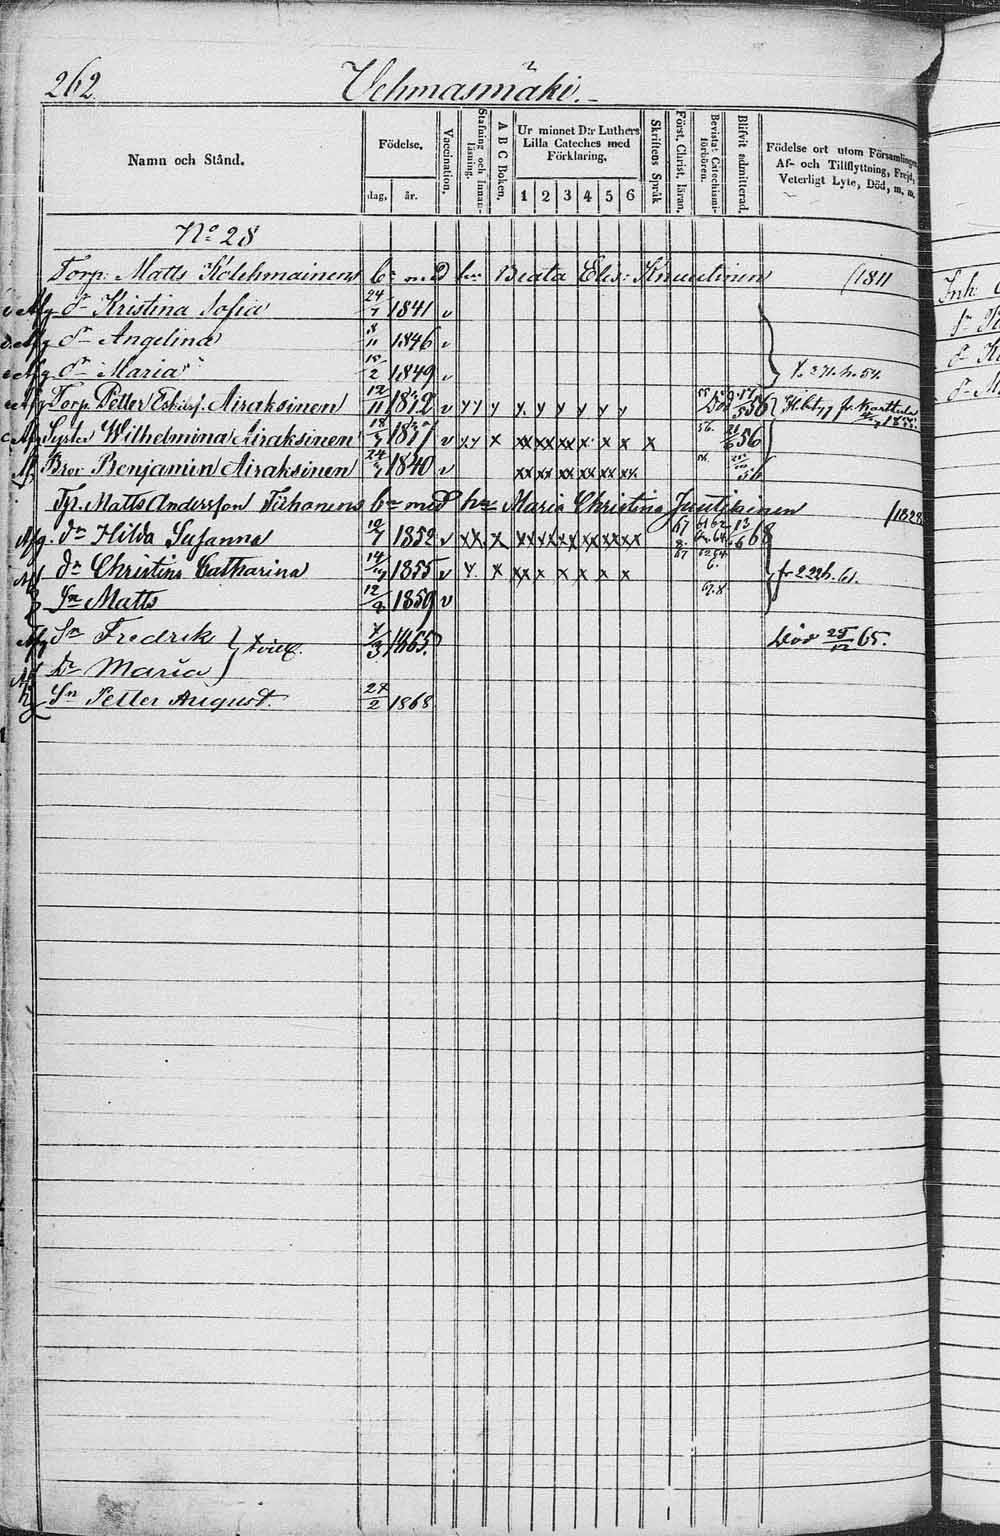 262. Vehmasmäki. 2
Namn och Stånd. Födelse. dag, år. Vaccination. Stafning och Innanläsning. A B C Boken. Ur minnet D:r Luthers Lilla Cateches med Förklaring. 1 2 3 4 5 6 Skriftens Språk Först. Christ. läran. Bevistat Catechismiförhören. Blifvit admitterad. Födelse ort utom Församlingen, Af- och Tillflyttning, Frejd, Veterligt Lyte, Död, m. m.
No 28
Torp. Matts Kolehmainens bn med hu Beata Elis: Knuutinen /1811
dr Kristina Sofia 24/7 1841 v
dr Angelina 8/11 1846 v
dr Maria 18/2 1849 v
Torp. Petter Eskilsf. Airaksinen 12/11 v y y y y y y y y y 56
Syster Wilhelmina Airaksinen 18/7 v x x x xx xx xx x x x x 56. 56
Bror Benjamin Airaksinen 24/7 1840 v xx xx xx xx xx xx 56
Matts Andersson Tiihonens bn med hu Maria Christina /1828
Afg. dr Hilda Susanna 10/7 1852 v xx x xx xx xx xx xx xx 67 61 62 13/6 68
dr Christina Catharina 14/ 1855 v x x xx x x x x x 67 62 64 fr 222 h. 61.
Sn Matts 12/ 1859 v
Sn Fredrik } tvill. 7/3 1865. Död 25/12 65.
Dr Maria
Sn Petter August. 24/2 1868